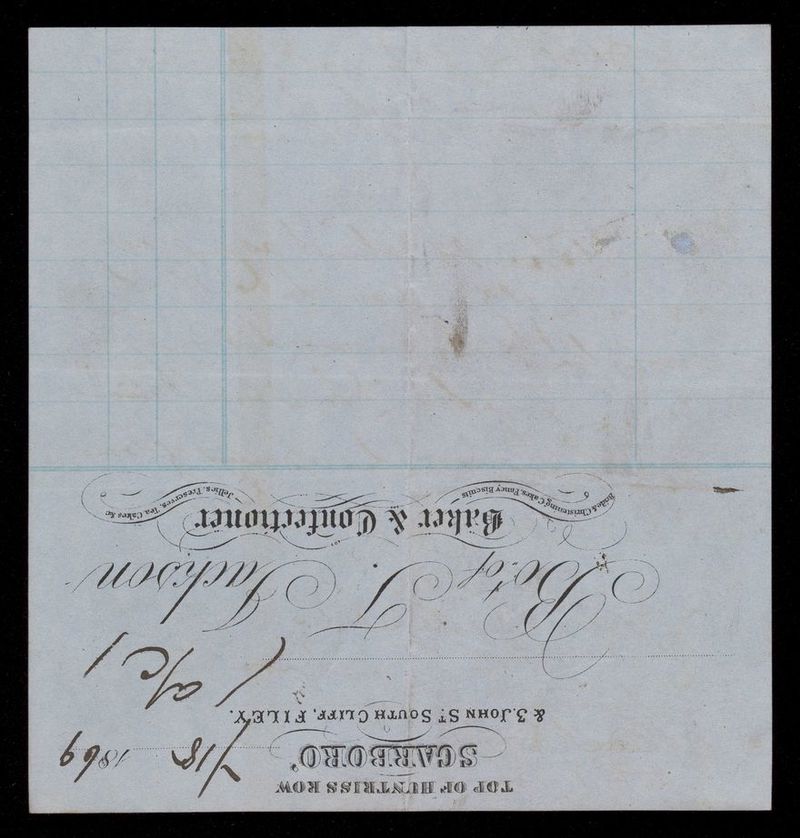 TOP OF HUNTRISS ROW
SCARBORO',
7/18 1869
& 3, JOHN ST. SOUTH CLIFF, FILEY.
a/c
Bot. of T. Jackson
Baker & Confectioner
Bride & Christening Cakes, Fancy Biscuits
Jellies, Preserves, Tea Cakes &c